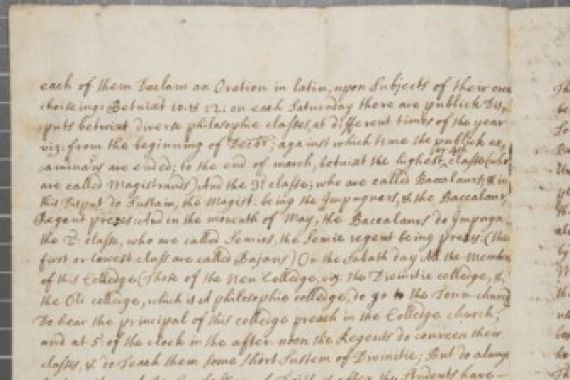 each of them Declam an Oration in latin, upon Subjects of their own
choiseing: Betwixt 10: & 12: on each Saturnday there are publick Dis,,
puts betwixt diverse philosophie classes, at different times of the year
viz: from the beginning of Decbr; against which time the publick ex,
aminaōns are ended; to the end of march, betwixt the highest classe (who
are called Magistrands) And the 3d classe; who are called Baccalaurs, & in
this Disput do sustain, the Magist: being the Impugners, & the Baccalaur
Regent preses: And in the moneth of May, the Baccalaurs do Impugn
the 2d: classe, who are called Semies, the Semie regent being preses. (the
first or lowest class are called Bajans) On the Sabath day All the Members
of this Colledge (Those of the New Colledge, viz: the Divinitie colledge, &
the Old colledge, which is a philosophie colledge, do go to the Town-church
To hear the principal of this colledge preach in the Colledge church;
and at 5 of the clock in the after noon the Regents do conveen their
classes, & do Teach them some short Sustem of Divinitie; But do alway
after the Students have